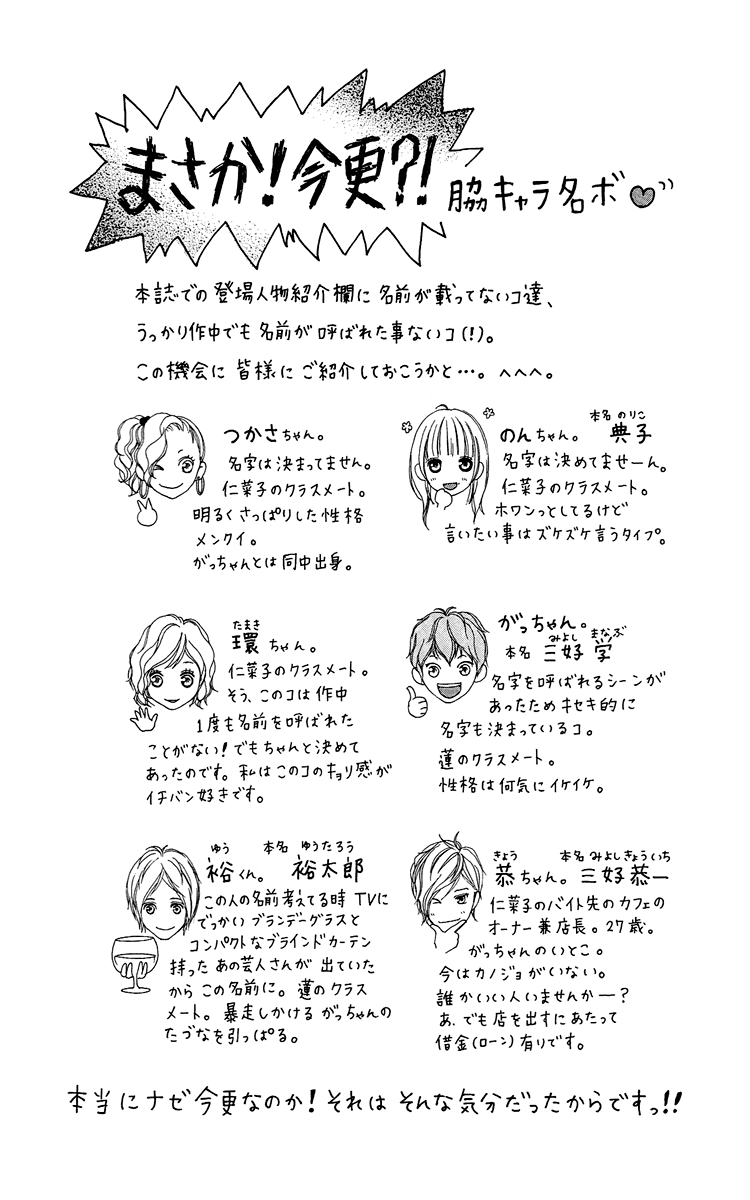 まさか!今更?!
脇キャラ名ボ
本誌での登場人物紹介欄に名前が載ってないコ達、
うっかり作中でも名前が呼ばれた事ないコ(!)。
この機会に皆様にご紹介しておこうかと…。へへへ。
つかさちゃん。
名字は決まってません。
仁菜子のクラスメート。
明るくさっぱりした性格
メンクイ。
がっちゃんとは同中出身。
本名 のりこ
のんちゃん。 典子
名字は決めてませーん。
仁菜子のクラスメート。
ホワンっとしてるけど
言いたい事はズケズケ言うタイプ。
たまき
環ちゃん。
仁菜子のクラスメート。
そう、このコは作中
1度も名前を呼ばれた
ことがない!でもちゃんと決めて
あったのです。私はこのコのキョリ感が
イチバン好きです。
がっちゃん。
みよし まなぶ
本名 三好 学
名字を呼ばれるシーンが
あったためキセキ的に
名字も決まっているコ。
蓮のクラスメート。
性格は何気にイケイケ。
ゆう 本名 ゆうたろう
裕くん。 裕太郎
この人の名前考えてる時TVに
でっかいブランデーグラスと
コンパクトなブラインドカーテン
持ったあの芸人さんが出ていた
からこの名前に。蓮のクラス
メート。暴走しかけるがっちゃんの
たづなを引っぱる。
きょう 本名 みよしきょういち
恭ちゃん。三好恭一
仁菜子のバイト先のカフェの
オーナー兼店長。27歳。
がっちゃんのいとこ。
今はカノジョがいない。
誰かいい人いませんかー?
あ、でも店を出すにあたって
借金(ローン)有りです。
本当にナゼ今更なのか!それはそんな気分だったからですっ!!